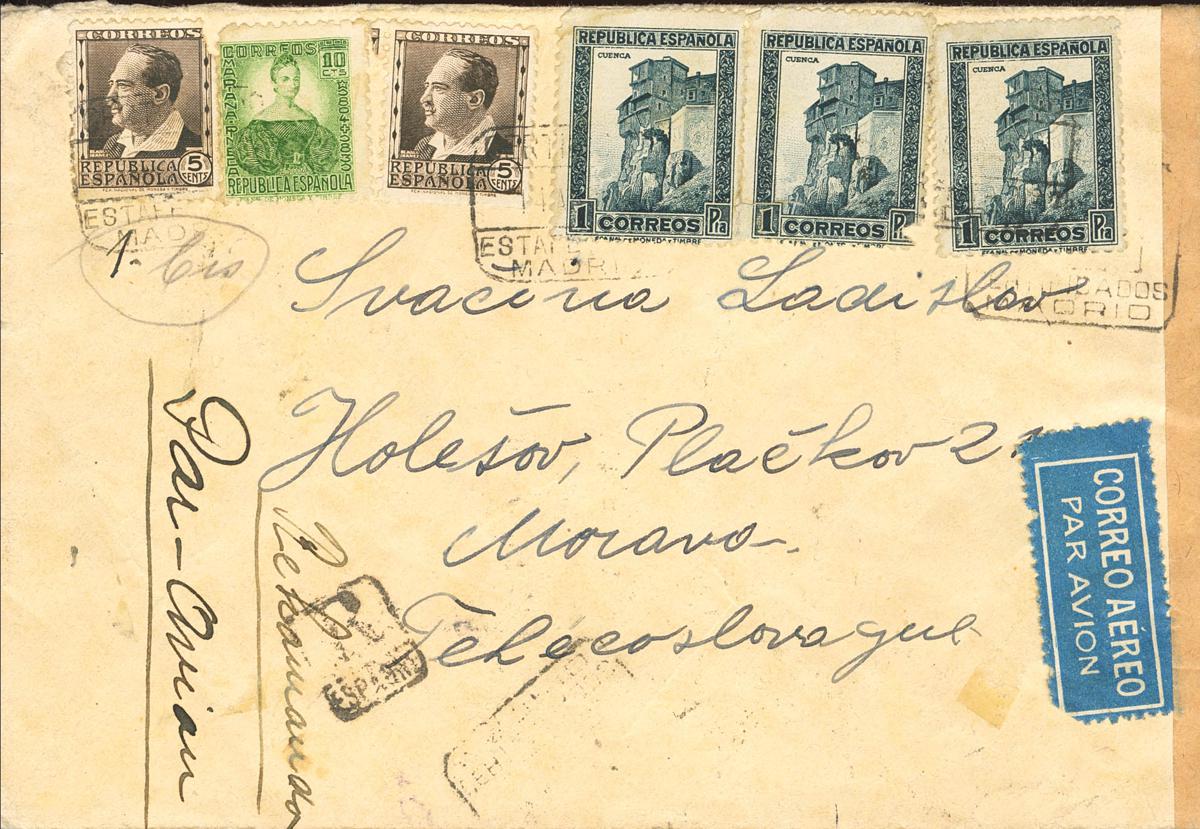 CORREOS
REPÚBLICA ESPAÑOLA
5 CENTS
CORREOS
10 CTS
MARIANA PINEDA
REPÚBLICA ESPAÑOLA
CORREOS
REPÚBLICA ESPAÑOLA
5 CENTS
REPUBLICA ESPAÑOLA
CUENCA
1 CORREOS Pta
REPUBLICA ESPAÑOLA
CUENCA
1 CORREOS Pta
REPUBLICA ESPAÑOLA
CUENCA
1 CORREOS Pta
MADRI
MADRID
1. bis
Svacina Ladislav
Holešov, Plačkov
Morava
Tchécoslovaque
Par-Avion
CORREO AÉREO
PAR AVION